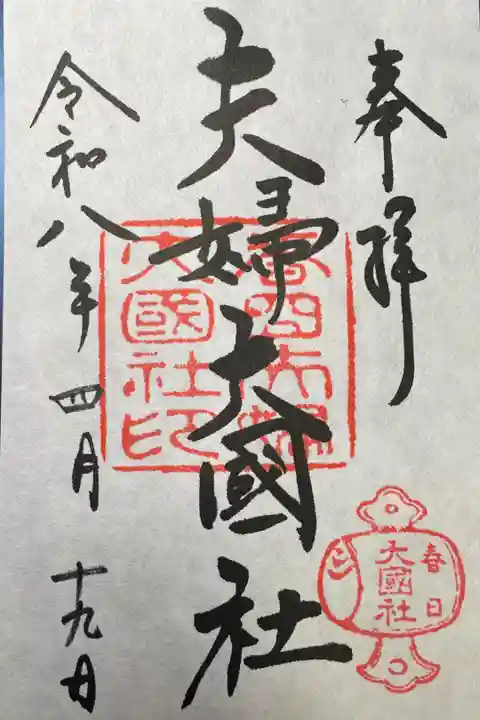 奉拝
夫婦大國社
春日夫婦
大國社印
春日
大國社
令和八年四月十九日